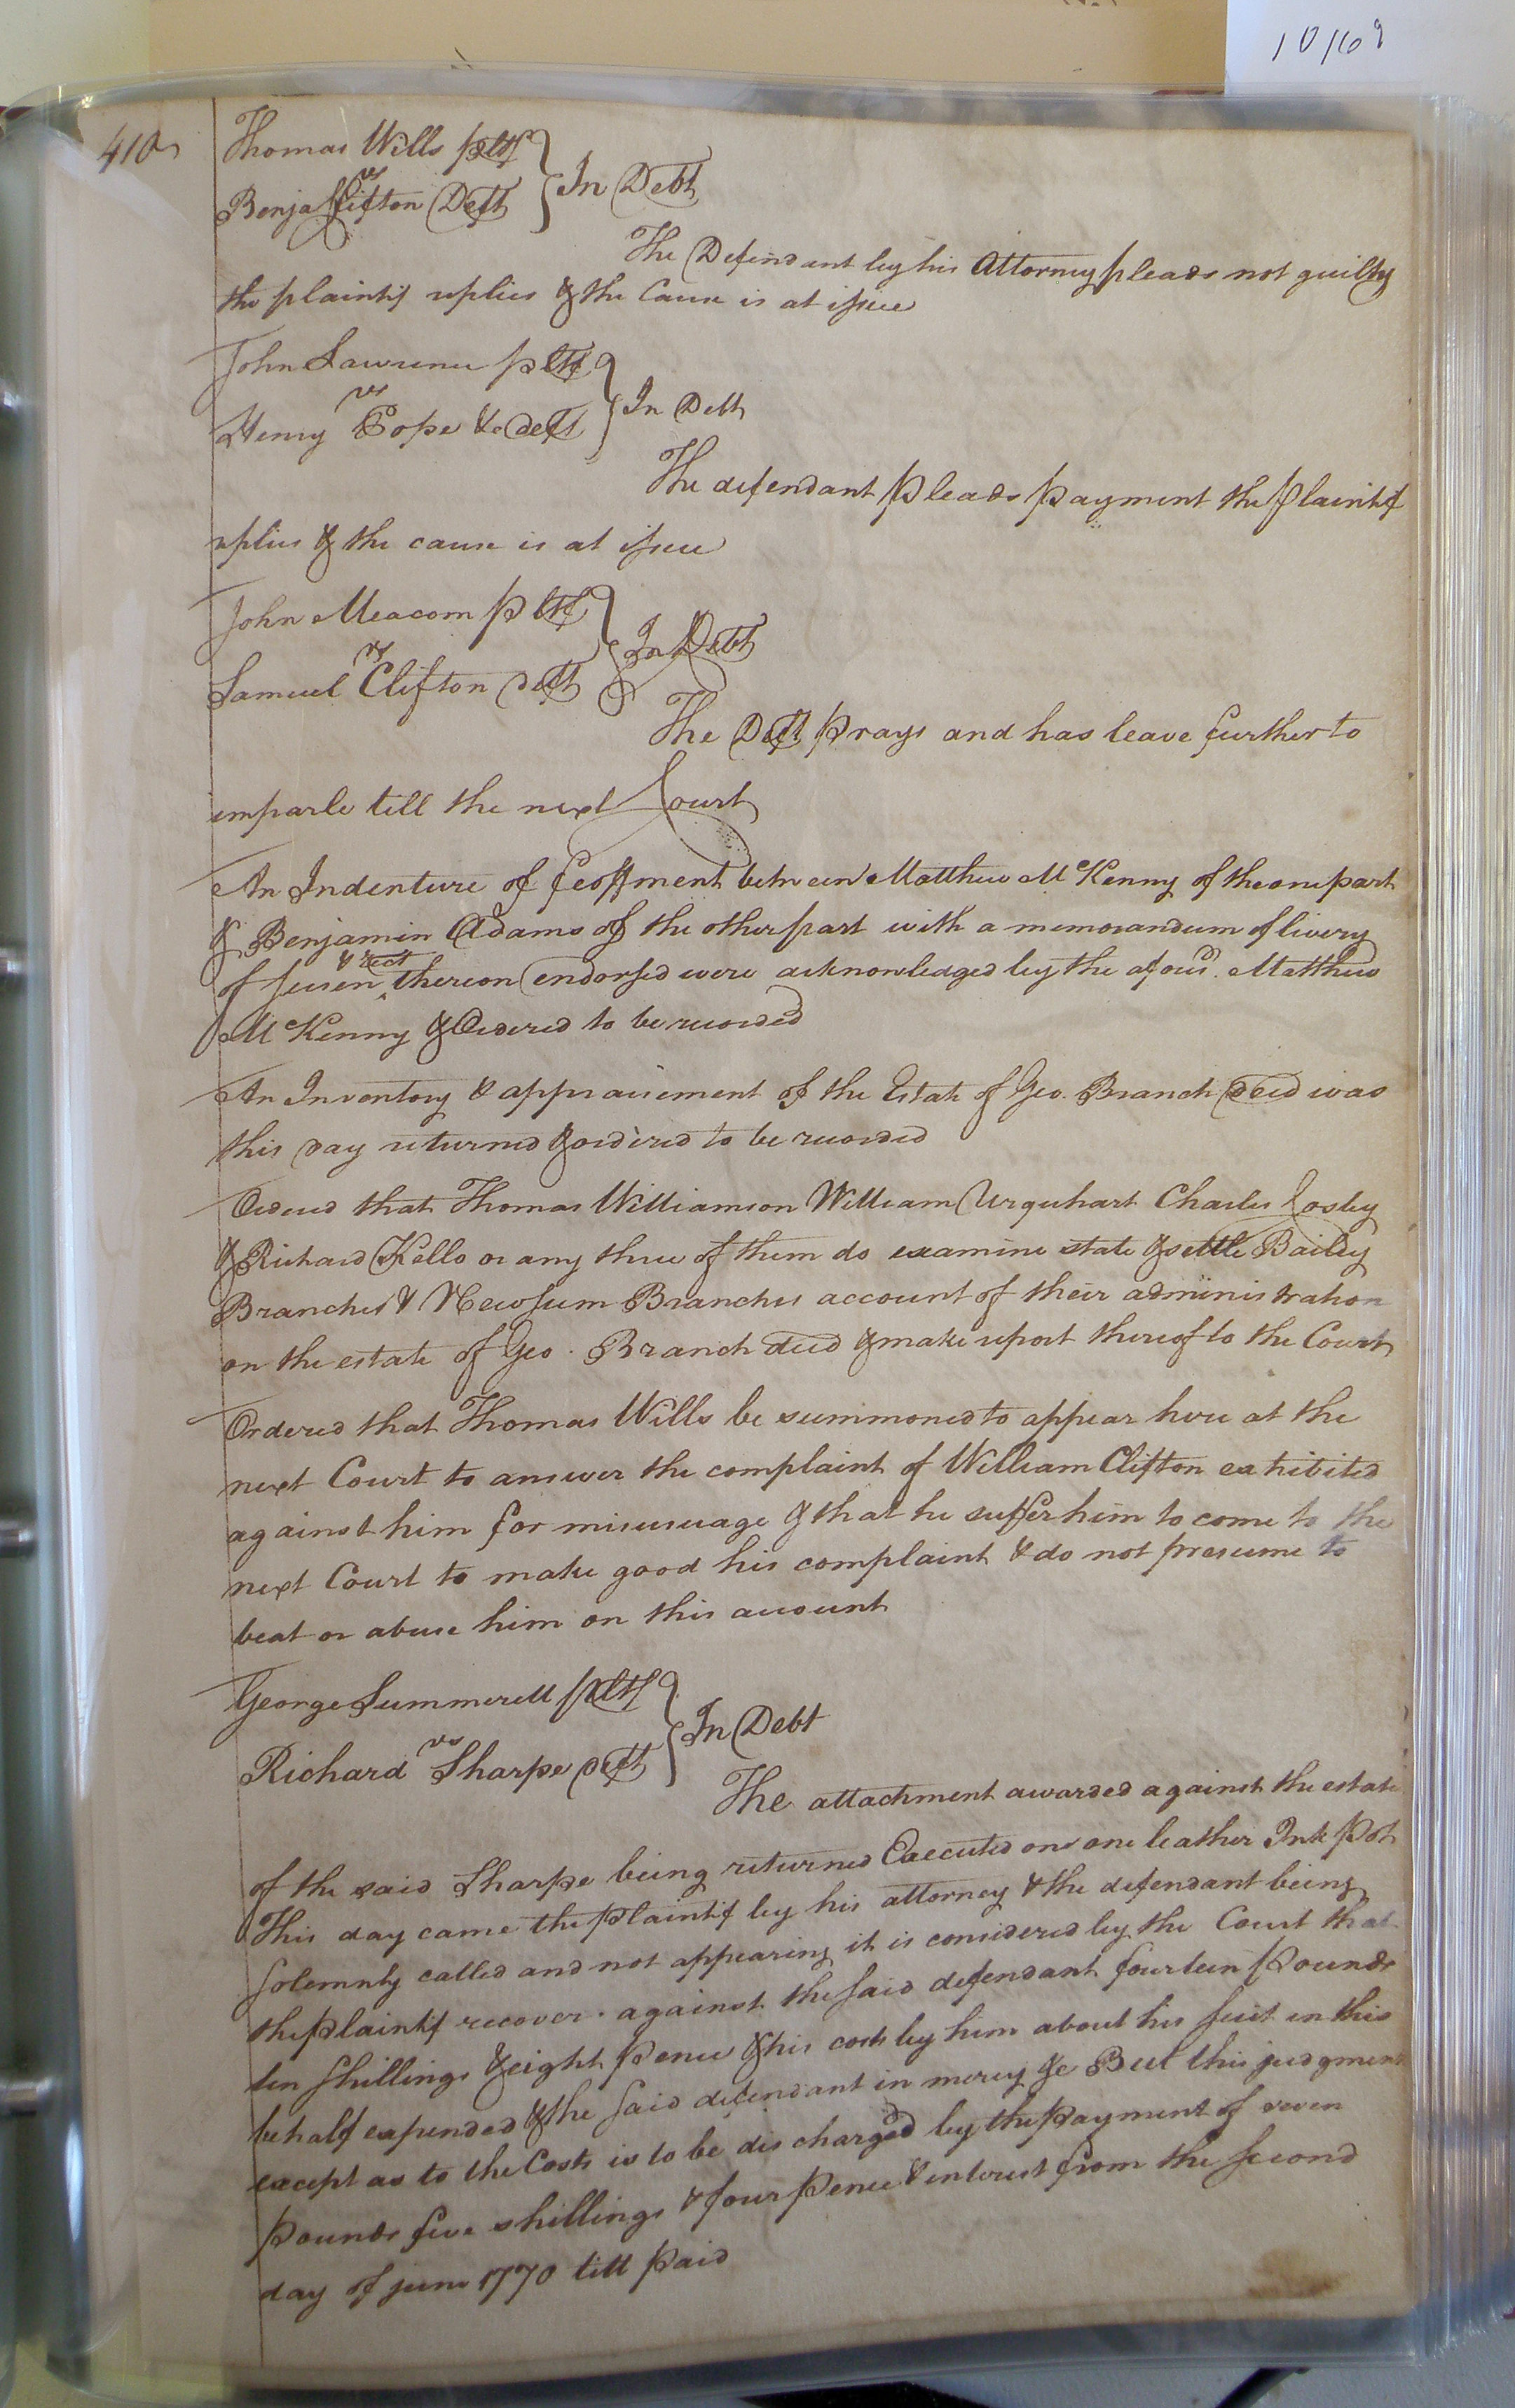 10169
410
Thomas Wills pltf
vs
Benja Clifton Deft
In Debt
The Defendant by his Attorney pleads not guilty
the plaintif replies & the Cause is at issue
John Lawrence pltf
vs
Henry Pope &c deft
In Debt
The defendant pleads payment the plaintif
replies & the cause is at issue
John Meacom pltf
vs
Samuel Clifton deft
In Debt
The Deft prays and has leave further to
imparle till the next Court
An Indenture of feoffment between Matthew McKenny of the one part
& Benjamin Adams of the other part with a memorandum of livery
& rect
of seisen thereon endorsed were acknowledged by the afousd. Matthew
McKenny & Ordered to be recorded
An Inventory & appraisement of the Estate of Geo. Branch decd was
this day returned & ordered to be recorded
Ordered that Thomas Williamson William Urquhart Charles Cosby
& Richard Kello or any three of them do examine state & settle Bailey
Branches & Newsum Branches account of their administration
on the estate of Geo. Branch decd & make report thereof to the Court
Ordered that Thomas Wills be summoned to appear here at the
next Court to answer the complaint of William Clifton exhibited
against him for misusuage & that he suffer him to come to the
next Court to make good his complaint & do not presume to
beat or abuse him on this account
George Summerell pltf
vs
Richard Sharpe deft
In Debt
The attachment awarded against the estate
of the said Sharpe being returned Executed on one leather Ink Pot
This day came the plaintif by his attorney & the defendant being
solemnly called and not appearing it is considered by the Court that
the plaintif recover against the said defendant fourteen pounds
ten shillings & eight pence & his costs by him about his suit in this
behalf expended & the said defendant in mercy &c But this judgment
except as to the Costs is to be dischargd by the payment of seven
pounds five shillings & four pence & interest from the second
day of june 1770 till paid